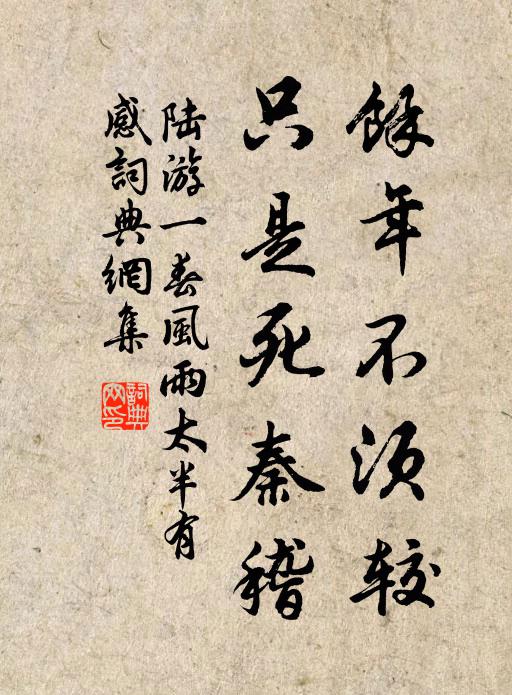 餘年不須較
只是死秦稽
陆游一春風雨太半有
感詞典網集
詞典网印